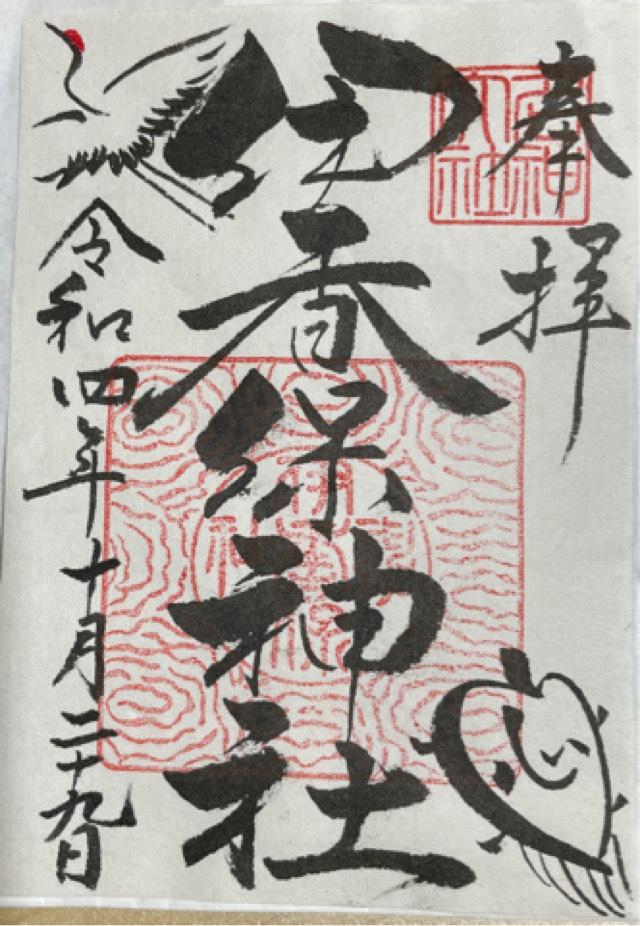 奉拝
伊香保神社
令和四年十月二十九日